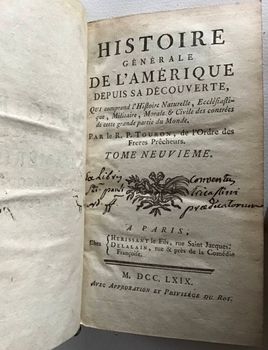 HISTOIRE
GÉNÉRALE
DE L'AMÉRIQUE
DEPUIS SA DÉCOUVERTE,
QUI comprend l'Histoire Naturelle, Ecclésiasti-
que, Militaire, Morale & Civile des contrées
de cette grande partie du Monde.
PAR le R. P. TOURON, de l'Ordre des
Freres Prêcheurs.
TOME NEUVIEME.
Ex Libris conventus
fratrum
prædicatorum
A PARIS,
Chez { HERISSANT le Fils, rue Saint Jacques;
DELALAIN, rue & près de la Comédie
Françoise.
M. DCC. LXIX.
AVEC APPROBATION ET PRIVILÉGE DU ROI.